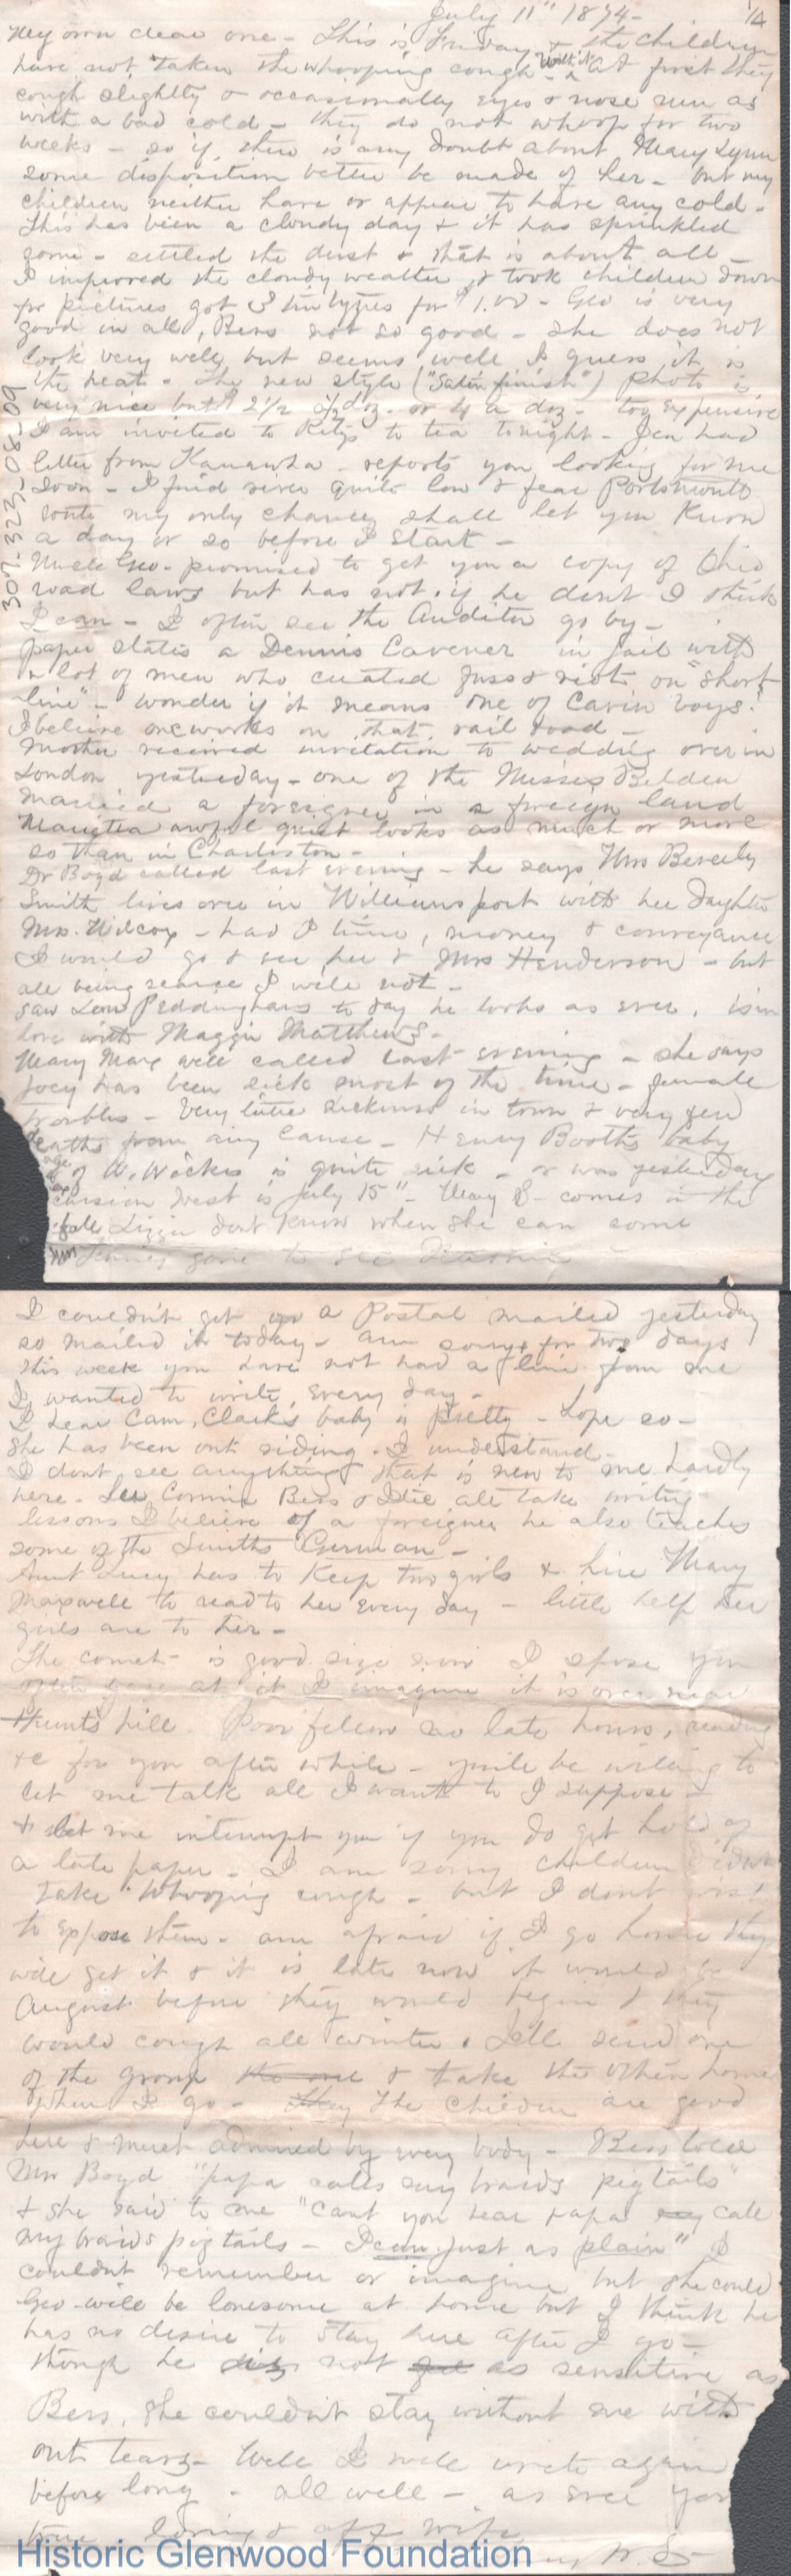 July 11" 1874-
1/4
My own dear one - This is Friday & the children
have not taken the whooping cough - Until it at first they
cough slightly & occasionally eyes & nose run as
with a bad cold - they do not whoop for two
weeks - so if there is any doubt about Mary Lynn
some disposition better be made of her - but my
children neither have or appear to have any cold -
This has been a cloudy day & it has sprinkled
some - settled the dust & that is about all -
I improved the cloudy weather & took children down
for pictures got 3 tintypes for $1.00 - Geo is very
good in all, Bess not so good - she does not
look very well but seems well I guess it is
the heat - The new style ("Satin finish") photo is
very nice but 2 1/2 1/2 doz. or 4 a doz - too expensive
I am invited to Kitys to tea tonight - Jen had
letter from Kanawha - reports you looking for me
soon - I find river quite low & fear Portsmouth
route my only chance, shall let you know
a day or so before I start -
Uncle Geo - promised to get you a copy of Ohio
road laws but has not. if he dont I think
I can - I often see the Auditor go by -
paper states a Dennis Cavener in jail with
a lot of men who created fuss & riot on "short
line" - wonder if it means one of Cavin boys.
I believe one works on that rail road -
Mother received invitation to wedding over in
London yesterday - one of the Misses Belden
married a foreigner in a foreign land
Marietta awful quiet looks as much or more
so than in Charleston -
Dr Boyd called last evening - he says Mrs Beverly
Smith lives over in Williamsport with her daughter
Mrs. Wilcox - had I time, money & conveyance
I would go & see her & Mrs Henderson - but
all being scarce I will not -
saw Leon Peddinghaus to day he looks as ever, is in
love with Maggie Matthews -
Mary Maxwell called last evening - she says
Joey has been sick most of the time - female
troubles - Very little sickness in town & very few
deaths from any cause - Henry Booths baby
of W. Wickes is quite sick - or was yesterday
excursion West is July 15" - Mary B - comes in the
fall Lizzie dont know when she can come
gone to see
I couldn't get a Postal mailed yesterday
so mailed it today - am sorry for two days
this week you have not had a line from me
I wanted to write every day -
I hear Cam. Clark's baby is pretty - hope so -
She has been out riding. I understand -
I dont see anything that is new to me hardly
here - Connie Bess & all take writing
lessons I believe of a foreigner he also teaches
some of the Smiths German -
Aunt Lucy has to keep two girls & hire Mary
Maxwell to read to her every day - little help her
girls are to her -
The comet is good size now I spose you
often gaze at it I imagine it is over near
Hunts hill. Poor fellow no late hours, reading
&c for you after while - you'll be willing to
let me talk all I want to I suppose -
& let me interrupt you if you do get hold of
a late paper - I am sorry children didnt
take whooping cough - but I dont wish
to expose them - am afraid if I go home they
will get it & it is late now it would be
August before they would begin & they
would cough all winter. I'll send one
of the group & take the others home
when I go - The children are good
here & much admired by every body - Bess told
Mrs Boyd "papa calls my braids pigtails"
& she said to me "cant you hear papa call
my braids pigtails - I can just as plain" I
couldnt remember or imagine but she could
Geo - will be lonesome at home but I think he
has no desire to stay here after I go -
though he is not as sensitive as
Bess, she couldn't stay without me with
out tears - Well I will write again
before long - all well - as ever your
true loving & aff wife
Historic Glenwood Foundation
307-323-08-09